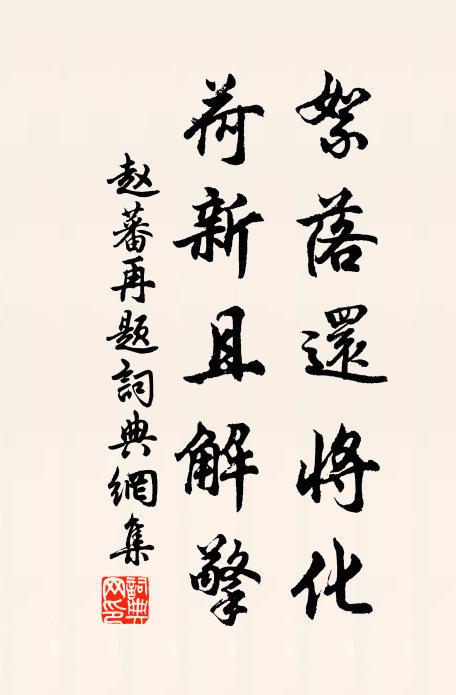 絮落還將化
荷新且解擎
赵蕃再題詞典網集
詞典网印